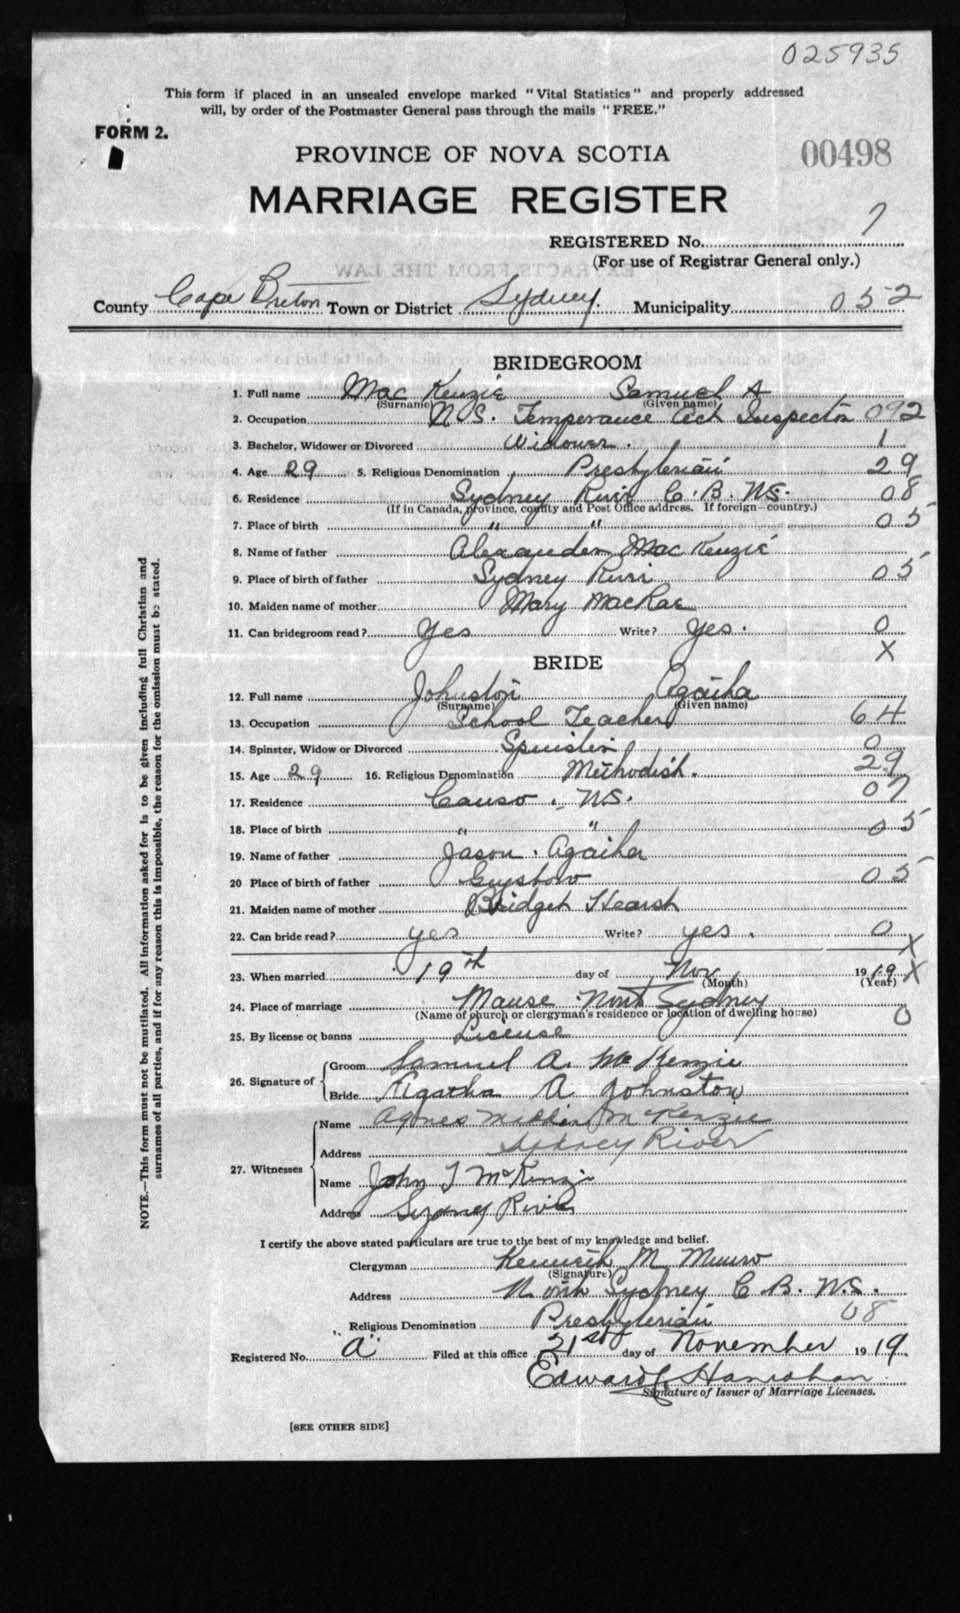 025935
This form if placed in an unsealed envelope marked "Vital Statistics" and properly addressed
will, by order of the Postmaster General pass through the mails "FREE."
FORM 2.
PROVINCE OF NOVA SCOTIA
00498
MARRIAGE REGISTER
REGISTERED No. 7
(For use of Registrar General only.)
County Cape Breton Town or District Sydney. Municipality 052
BRIDEGROOM
1. Full name Mac Kenzie Samuel A
(Surname) (Given name)
2. Occupation N.S. Temperance Act Inspector 092
3. Bachelor, Widower or Divorced Widower. 1
4. Age 29 5. Religious Denomination Presbyterian 29
6. Residence Sydney River C.B. N.S. 08
(If in Canada, province, county and Post Office address. If foreign country.)
7. Place of birth " " 05
8. Name of father Alexander Mac Kenzie
9. Place of birth of father Sydney River 05
10. Maiden name of mother Mary MacRae
11. Can bridegroom read? Yes Write? Yes. 0
X
BRIDE
12. Full name Johnston Agatha
(Surname) (Given name)
13. Occupation School Teacher 64
14. Spinster, Widow or Divorced Spinster 0
15. Age 29 16. Religious Denomination Methodist. 29
17. Residence Canso. N.S. 07
18. Place of birth " " 05
19. Name of father Jason. Agatha
20 Place of birth of father Guysboro 05
21. Maiden name of mother Bridget Hearsh
22. Can bride read? yes Write? yes. 0
X
23. When married 19th day of Nov 1919 X
(Month) (Year)
24. Place of marriage Manse North Sydney
(Name of church or clergyman's residence or location of dwelling house) 0
25. By license or banns License
26. Signature of Groom Samuel A. McKenzie
Bride Agatha A Johnston
27. Witnesses Name Agnes McKenzie
Address Sydney River
Name John T McKenzie
Address Sydney River
I certify the above stated particulars are true to the best of my knowledge and belief.
Clergyman Kenneth M Munro
(Signature)
Address North Sydney C.B. N.S.
Religious Denomination Presbyterian 08
Registered No. "A" Filed at this office 21st day of November 1919.
Edward J Hanrahan
Signature of Issuer of Marriage Licenses.
[SEE OTHER SIDE]
NOTE.—This form must not be mutilated. All information asked for is to be given including full Christian and
surnames of all parties, and if for any reason this is impossible, the reason for the omission must be stated.